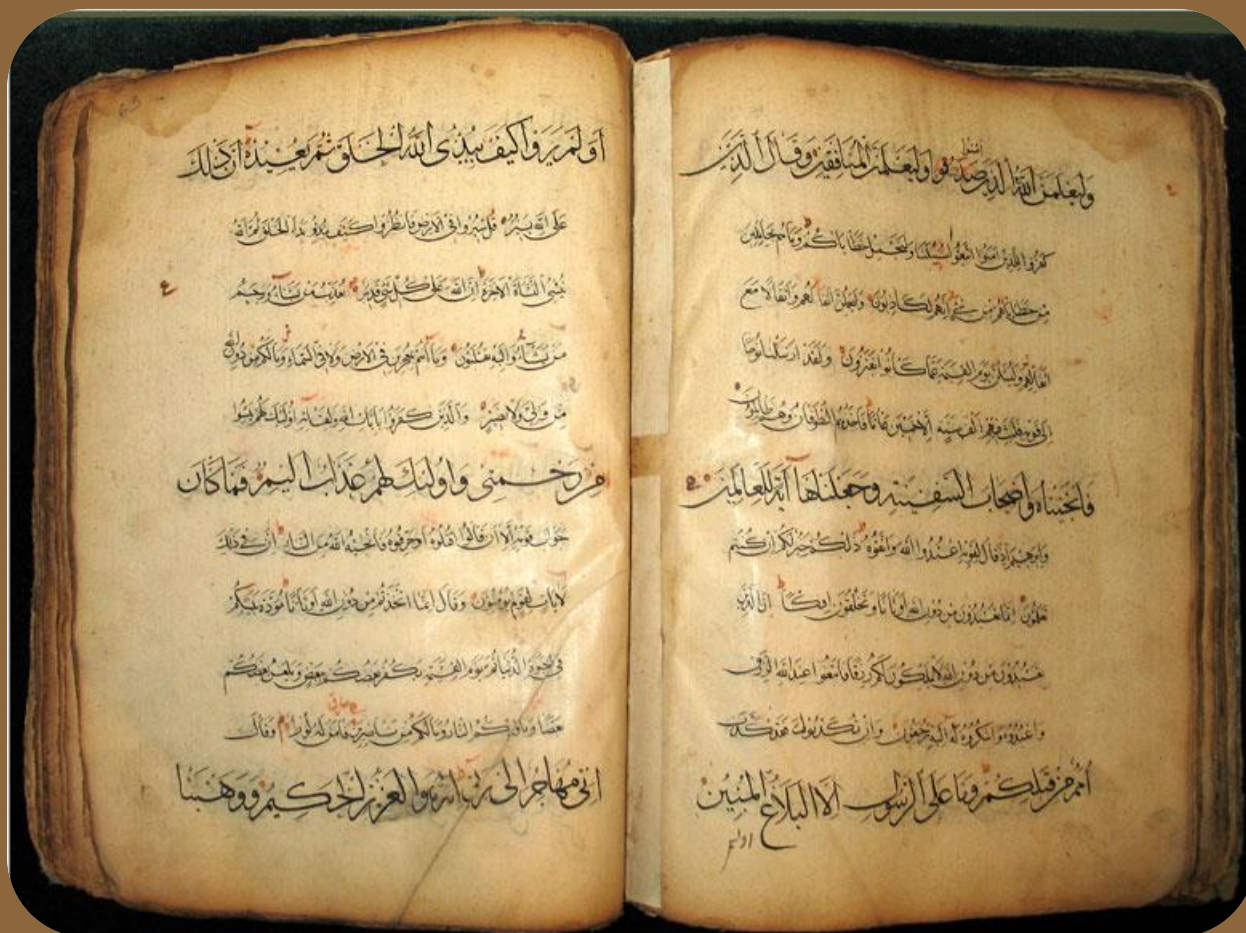 امنوا
وليعلمن الله الذين صدقوا وليعلمن المنافقين وقال الذين
كفروا للذين امنوا اتبعوا سبيلنا ولنحمل خطاياكم وما هم بحاملين
من خطاياهم من شيء انهم لكاذبون وليحملن اثقالهم واثقالا مع
اثقالهم وليسئلن يوم القيمة عما كانوا يفترون ولقد ارسلنا نوحا
الى قومه فلبث فيهم الف سنة الا خمسين عاما فاخذهم الطوفان وهم ظالمون
فانجيناه واصحاب السفينة وجعلناها آية للعالمين
وابرهيم اذ قال لقومه اعبدوا الله واتقوه ذلكم خير لكم ان كنتم
تعلمون انما تعبدون من دون الله اوثانا وتخلقون افكا ان الذين
تعبدون من دون الله لا يملكون لكم رزقا فابتغوا عند الله الرزق
واعبدوه واشكروه له اليه ترجعون وان تكذبوك فقد كذب
امم من قبلكم وما على الرسول الا البلاغ المبين
اولم
اولم يروا كيف يبدئ الله الخلق ثم يعيده ان ذلك
على الله يسير قل سيروا في الارض فانظروا كيف بدا الخلق ثم الله
ينشئ النشأة الاخرة ان الله على كل شيء قدير يعذب من يشاء ويرحم
من يشاء واليه تقلبون وما انتم بمعجزين في الارض ولا في السماء وما لكم من دون الله
من ولي ولا نصير والذين كفروا بايات الله ولقائه اولئك يئسوا
من رحمتي واولئك لهم عذاب اليم فما كان
جواب قومه الا ان قالوا اقتلوه او حرقوه فانجيه الله من النار ان في ذلك
لايات لقوم يؤمنون وقال انما اتخذتم من دون الله اوثانا مودة بينكم
في الحيوة الدنيا ثم يوم القيمة يكفر بعضكم ببعض ويلعن بعضكم
بعضا وماويكم النار وما لكم من ناصرين فامن له لوط وقال
اني مهاجر الى ربي انه هو العزيز الحكيم ووهبنا